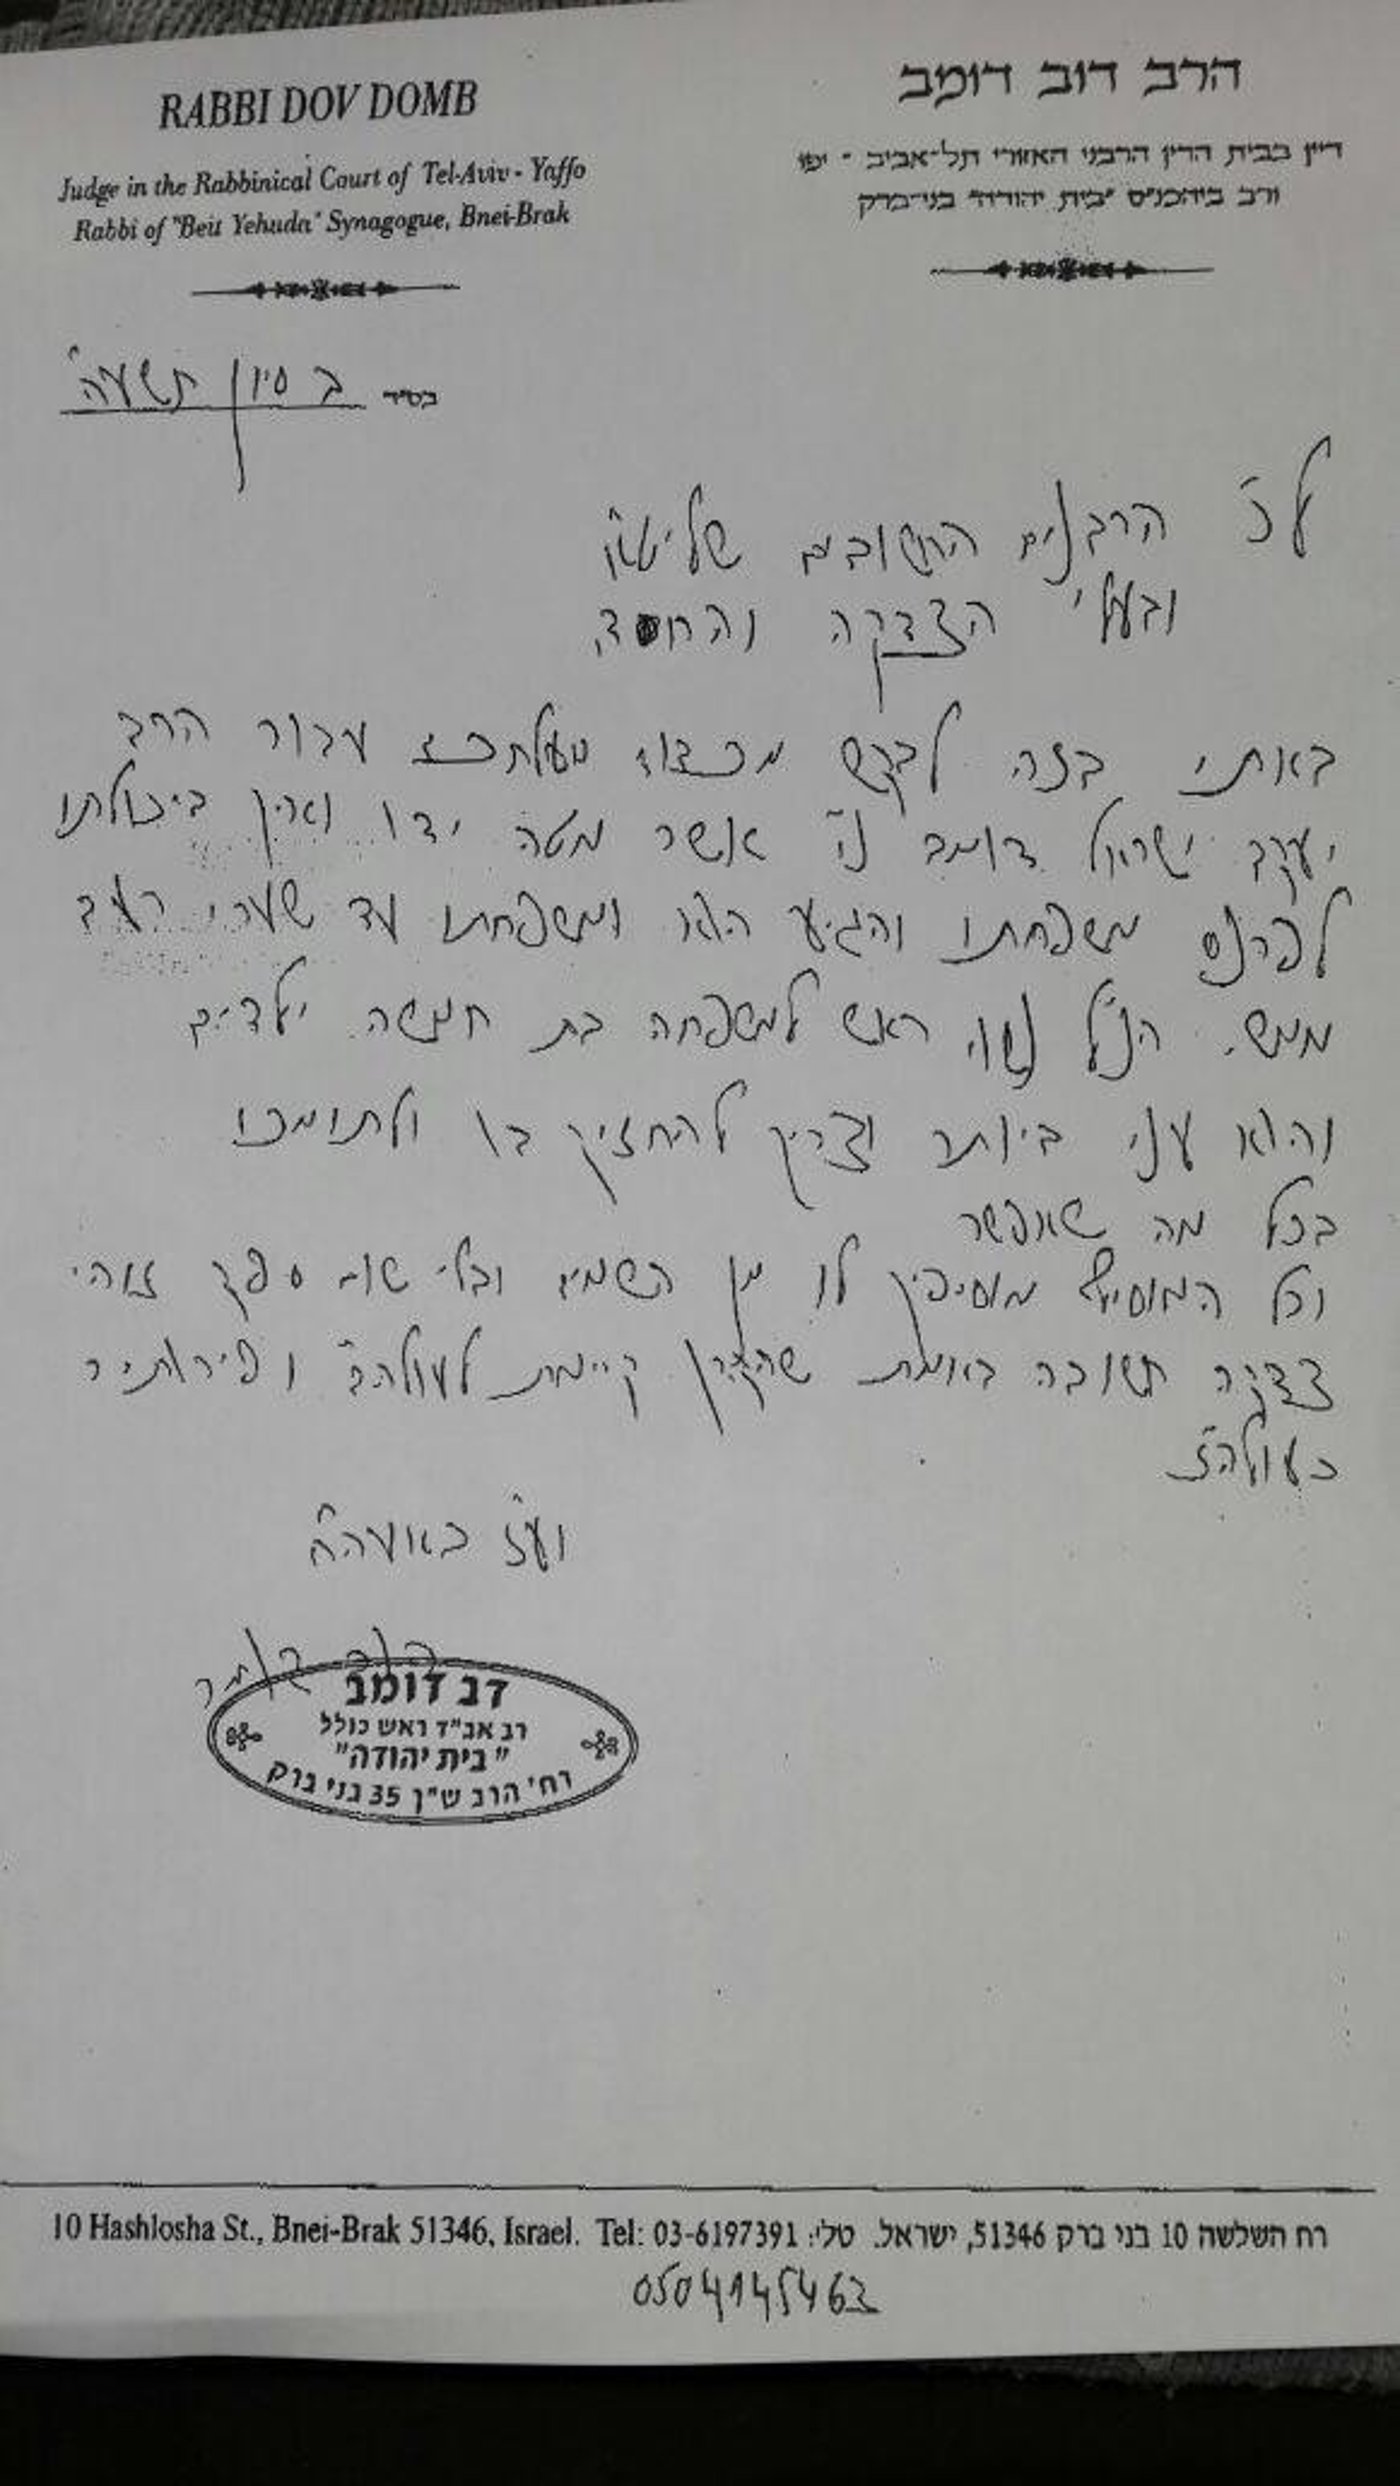 RABBI DOV DOMB
Judge in the Rabbinical Court of Tel-Aviv - Yaffo
Rabbi of "Beit Yehuda" Synagogue, Bnei-Brak
הרב דוב דומב
דיין בבית הדין הרבני האזורי תל-אביב - יפו
ורב ביהכנ"ס "בית יהודה" בני-ברק
בס"ד ב סיון תשע"ה
לכ' הרבנים החשובים שליט"א
ובעלי הצדקה והחסד
באותי בזה לבקש מכבוד מעלתכם עבור הרב
יעקב ישראל דומב ני' אשר מטה ידו ואין ביכולתו
לפרנס משפחתו והגיע הוא ומשפחתו עד שערי רעב
ממש. הנ"ל נשוי ראש למשפחה בת חמשה ילדים
והוא עני ביותר וצריך להחזיק בו ולתומכו
בכל מה שאפשר
וכל המוסיף מוסיפין לו מן השמים ובלי שום ספק זוהי
צדקה חשובה באמת שהקרן קיימת לעולה"ב ופירותיה
בעולה"ז
ועז באעה"ח
דב דומב
רב אב"ד ראש כולל
"בית יהודה"
רח' הרב ש"ך 35 בני ברק
10 Hashlosha St., Bnei-Brak 51346, Israel. Tel: 03-6197391 רח השלשה 10 בני ברק 51346, ישראל. טלי:
0504145463